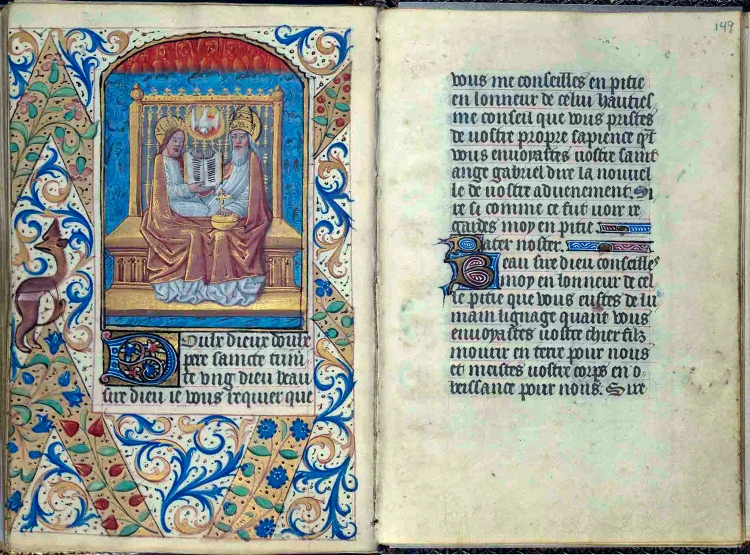 Doulx dieux doulx
pere saincte trini
te ung dieu beau
sire dieu ie vous requier que
149
vous me conseilles en pitie
en lonneur de celui haultiesme
me conseil que vous pristes
de vostre propre sapience q̄t
vous envoyastes vostre saint
ange gabriel dire la nouuel
le de vostre aduenement. Si
re si comme ce fut voir re
gardes moy en pitie
Pater noster.
Beau sire dieu conseilles
moy en lonneur de cel
le pitie que vous eustes de lu
main lignage quant vous
envoyastes vostre chier filz
mourir en terre pour nous
et meistes vostre corps en o
beissance pour nous. Sire